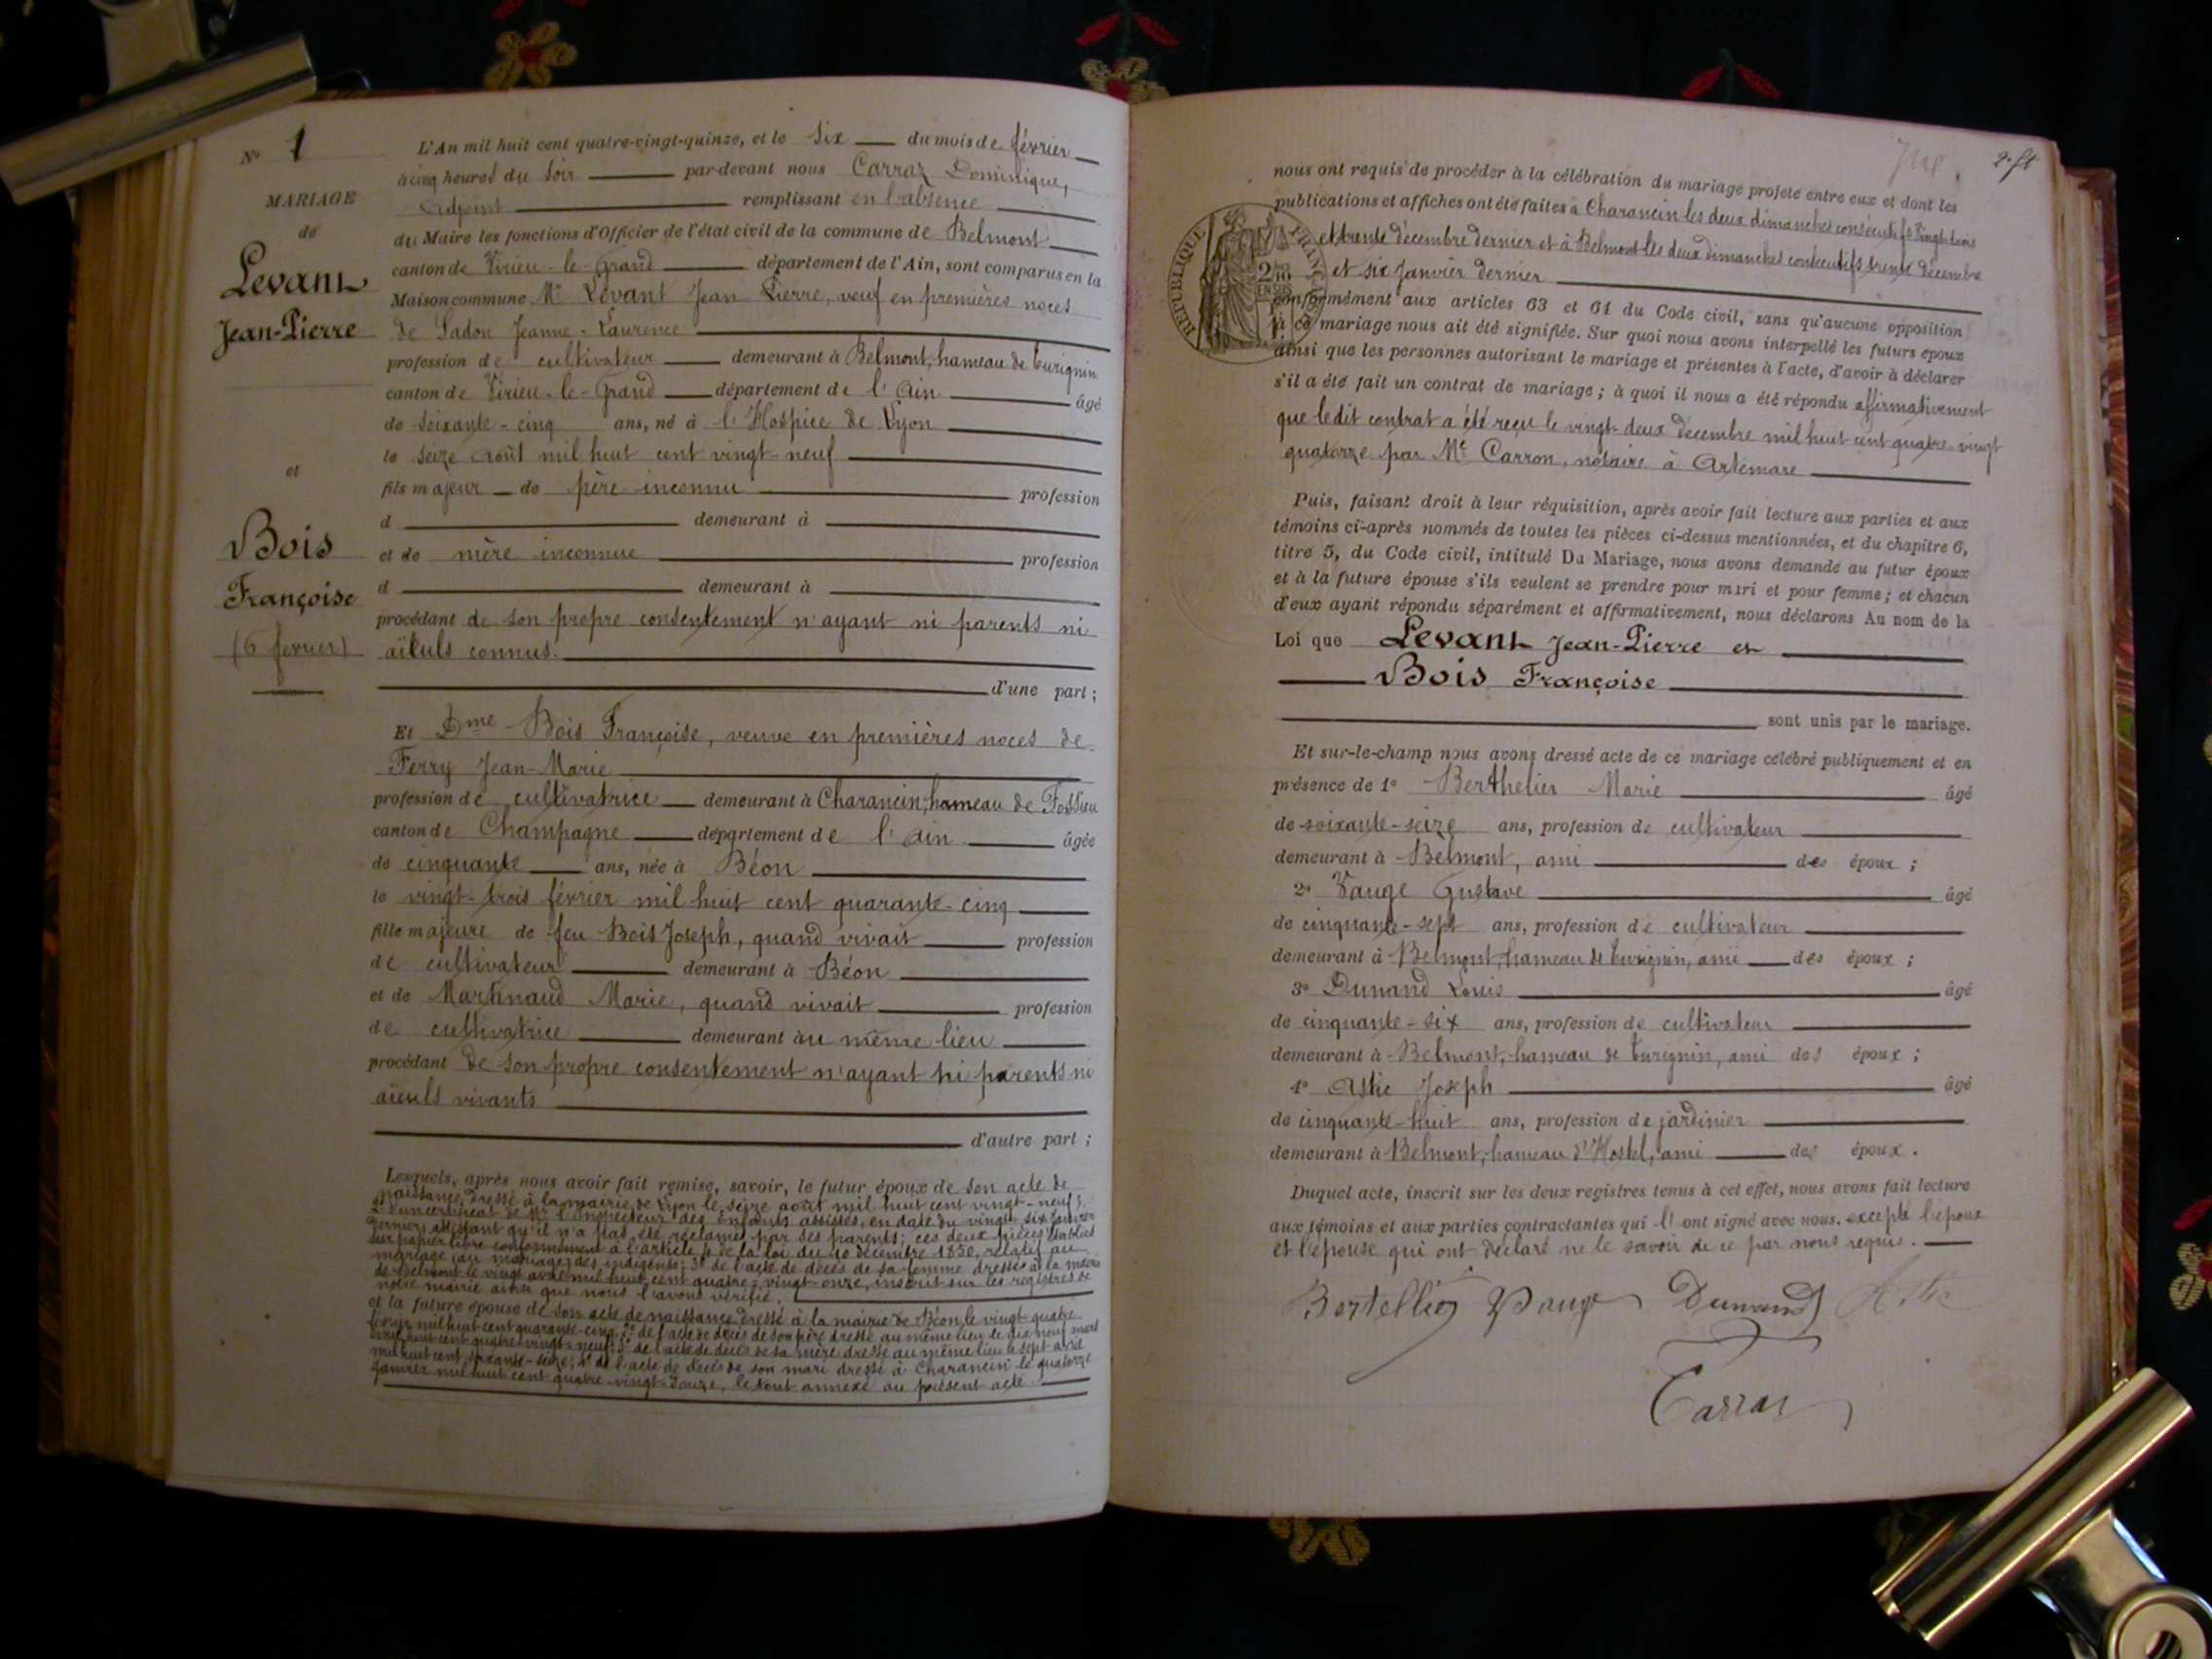 N° 1
MARIAGE
de
Levant
Jean-Pierre
et
Bois
Françoise
(6 février)
L'An mil huit cent quatre-vingt-quinze, et le six du mois de février
à cinq heures du soir par-devant nous Carraz Dominique,
Adjoint remplissant en l'absence
du Maire les fonctions d'Officier de l'état civil de la commune de Belmont
canton de Virieu-le-Grand département de l'Ain, sont comparus en la
Maison commune Mr Levant Jean Pierre, veuf en premières noces
de Jeanne-Laurence
profession de cultivateur demeurant à Belmont, hameau de
canton de Virieu-le-Grand département de l'Ain âgé
de soixante-cinq ans, né à l'Hospice de Lyon
le seize août mil huit cent vingt-neuf
fils majeur de père inconnu profession
d demeurant à
et de mère inconnue profession
d demeurant à
procédant de son propre consentement n'ayant ni parents ni
aïeuls connus.
d'une part ;
Et Dme Bois Françoise, veuve en premières noces de
Ferry Jean-Marie
profession de cultivatrice demeurant à Charancin, hameau de Fossieu
canton de Champagne département de l'Ain âgée
de cinquante ans, née à Béon
le vingt-trois février mil huit cent quarante-cinq
fille majeure de feu Bois Joseph, quand vivait profession
de cultivateur demeurant à Béon
et de Martinaud Marie, quand vivait profession
de cultivatrice demeurant au même lieu
procédant de son propre consentement n'ayant ni parents ni
aïeuls vivants
d'autre part ;
Lesquels, après nous avoir fait remise, savoir, le futur époux de son acte de
naissance dressé à la mairie de Lyon le seize août mil huit cent vingt-neuf ;
2° d'un certificat de Mr l'Inspecteur des Enfants assistés, en date du vingt-six janvier
dernier attestant qu'il n'a pas été réclamé par ses parents ; ces deux pièces établies
sur papier libre conformément à l'article 4 de la loi du 10 décembre 1850, relatif au
mariage des indigents ; 3° de l'acte de décès de sa femme dressé à la mairie
de Belmont le vingt avril mil huit cent quatre-vingt-onze, inscrit sur les registres de
notre mairie ainsi que nous l'avons vérifié.
et la future épouse de son acte de naissance dressé à la mairie de Béon le vingt-quatre
février mil huit cent quarante-cinq ; 2° de l'acte de décès de son père dressé au même lieu le dix neuf mars
mil huit cent quatre-vingt-neuf ; 3° de l'acte de décès de sa mère dressé au même lieu le sept avril
mil huit cent soixante-seize ; 4° de l'acte de décès de son mari dressé à Charancin le quatorze
janvier mil huit cent quatre-vingt-douze, le tout annexé au présent acte.
nous ont requis de procéder à la célébration du mariage projeté entre eux et dont les
publications et affiches ont été faites à Charancin les deux dimanches consécutifs vingt-trois
et trente décembre dernier et à Belmont les deux dimanches consécutifs trente décembre
et six janvier dernier
RÉPUBLIQUE FRANÇAISE
conformément aux articles 63 et 64 du Code civil, sans qu'aucune opposition
à ce mariage nous ait été signifiée. Sur quoi nous avons interpellé les futurs époux
ainsi que les personnes autorisant le mariage et présentes à l'acte, d'avoir à déclarer
s'il a été fait un contrat de mariage ; à quoi il nous a été répondu affirmativement
que ledit contrat a été reçu le vingt-deux décembre mil huit cent quatre-vingt
quatorze par Me Carron, notaire à Artemare
Puis, faisant droit à leur réquisition, après avoir fait lecture aux parties et aux
témoins ci-après nommés de toutes les pièces ci-dessus mentionnées, et du chapitre 6,
titre 5, du Code civil, intitulé Du Mariage, nous avons demandé au futur époux
et à la future épouse s'ils veulent se prendre pour mari et pour femme ; et chacun
d'eux ayant répondu séparément et affirmativement, nous déclarons Au nom de la
Loi que Levant Jean-Pierre et
Bois Françoise
sont unis par le mariage.
Et sur-le-champ nous avons dressé acte de ce mariage célébré publiquement et en
présence de 1° Berthelier Marie âgé
de soixante-seize ans, profession de cultivateur
demeurant à Belmont, ami des époux ;
2° Vauge Gustave âgé
de cinquante-sept ans, profession de cultivateur
demeurant à Belmont, hameau de ami des époux ;
3° Dunand Louis âgé
de cinquante-six ans, profession de cultivateur
demeurant à Belmont, hameau de ami des époux ;
4° Astic Joseph âgé
de cinquante-huit ans, profession de jardinier
demeurant à Belmont, hameau d'Hostel, ami des époux.
Duquel acte, inscrit sur les deux registres tenus à cet effet, nous avons fait lecture
aux témoins et aux parties contractantes qui l'ont signé avec nous. excepté l'époux
et l'épouse qui ont déclaré ne le savoir de ce par nous requis.
Bertellier Vauge Dunand Astic
Carraz